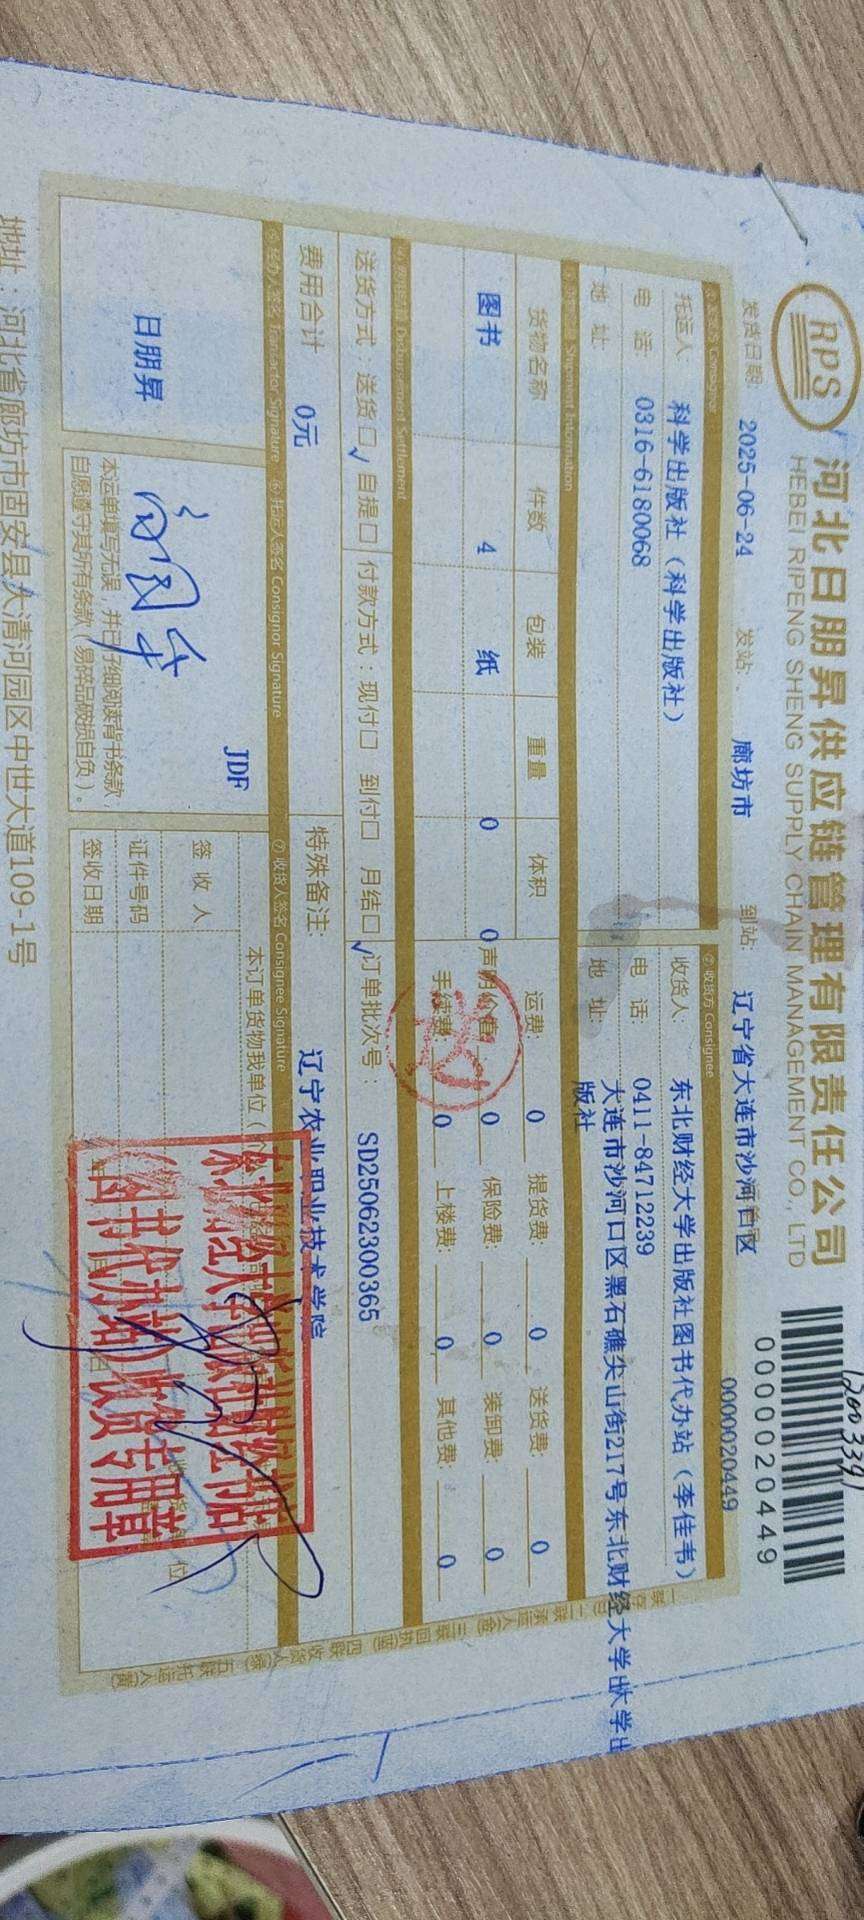 RPS
河北日朋昇供应链管理有限责任公司
HEBEI RIPENG SHENG SUPPLY CHAIN MANAGEMENT CO., LTD
0000020449
发货日期: 2025-06-24 发站: 廊坊市 到站: 辽宁省大连市沙河口区 0000020449
② 收货方 Consignee
托运人: 科学出版社（科学出版社） 收货人: 东北财经大学出版社图书代办站（李佳韦）
电 话: 0316-6180068 电 话: 0411-84712239
地 址: 地 址: 大连市沙河口区黑石礁尖山街217号东北财经大学出版社
Shipment Information
货物名称 件数 包装 重量 体积 运费: 0 提货费: 0 送货费: 0
图书 4 纸 0 0 声明价值: 0 保险费: 0 装卸费: 0
手续费: 0 上楼费: 0 其他费: 0
Disbursement Settlement
送货方式：送货□ ✓ 自提□ 付款方式：现付□ 到付□ 月结□ ✓ 订单批次号： SD25062300365
费用合计 0元 特殊备注: 辽宁农业职业技术学院
经办人签名 Transactor Signature ⑥ 托运人签名 Consignor Signature ⑦ 收货人签名 Consignee Signature
日朋昇
JDF
本运单填写无误，并已仔细阅读背书条款，
自愿遵守其所有条款（易碎品破损自负）。
本订单货物我单位（
签 收 人
证件号码
签收日期
(图书代办站)收货专用章
地址：河北省廊坊市固安县大清河园区中世大道109-1号